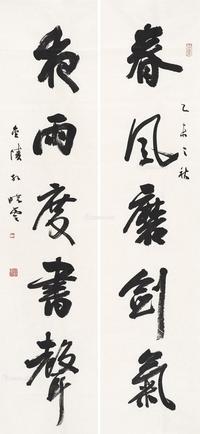 春風磨劍氣
乙未之秋
夜雨度書聲
金陵孙晓云